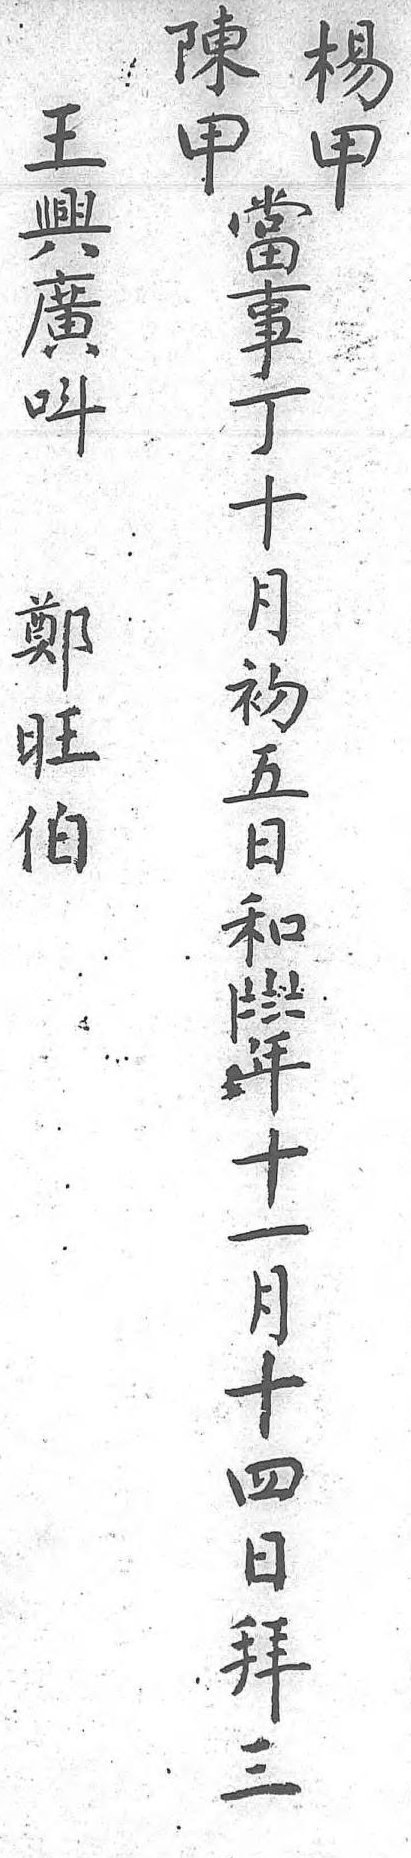 楊甲
陳甲
當事丁十月初五日和
年十一月十四日拜三
王興廣呌
鄭旺伯